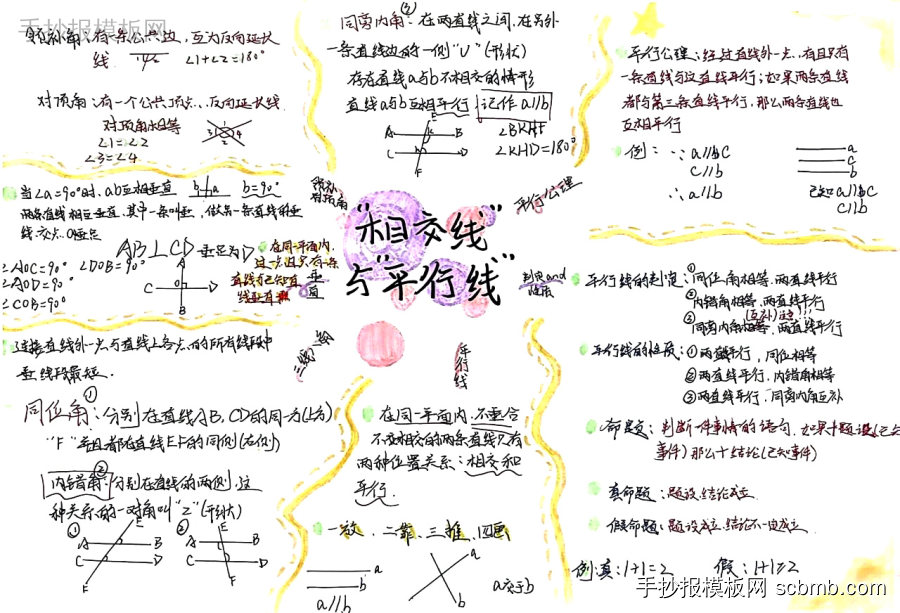 手抄报模板网
邻补角:有一条公共边,互为反向延长
线 ∠1+∠2=180°
对顶角:有一个公共顶点,反向延长线
对顶角相等
∠1=∠2
∠3=∠4
当∠a=90°时,ab互相垂直 b=90°
两条直线相互垂直,其中一条叫
线,交点O垂点
AB⊥CD 垂足为O
∠AOC=90° ∠DOB=90°
∠AOD=90°
∠COB=90°
在同一平面内,
过一点且只有一条
直线与已知直
线垂直
连接直线外一点与直线上各点的所有线段中
垂线段最短.
同位角①:分别在直线AB,CD的同一方(上方)
"F" 并且都在直线EF的同侧(右侧)
内错角②:分别在直线的两侧,这
种关系的一对角叫"Z"(形状)
① E A B C D F
② E A B C D F
同旁内角③:在两直线之间,在另外
一条直线边的一侧"U"(形状)
存在直线a与b不相交的情形
直线a与b互相平行 记作a//b
E A B C D F
∠BKHF
∠KHD=180°
"相交线"
与"平行线"
邻补
对顶角
垂直
三线八角
平行公理
判定and
性质
平行线
在同一平面内,不重合
不重相交的两条直线只有
两种位置关系:相交和
平行.
一放.二靠.三推.四画
a
b
a//b
a
b
a交于b
平行公理:经过直线外一点,有且只有
一条直线与这直线平行;如果两条直线
都与第三条直线平行,那么两条直线也
互相平行
例:∵a//bC
C//b
∴a//b
a
c
b
已知a//bC
C//b
平行线的判定:①同位角相等,两直线平行
②内错角相等,两直线平行
(互补)
③同旁内角相等,两直线平行
平行线的性质:①两直线平行,同位相等
②两直线平行,内错角相等
③两直线平行,同旁内角互补
命题:判断一件事情的语句.如果+题设(已知
事件)那么+结论(已知事件)
真命题:题设,结论成立.
假命题:题设成立,结论不一定成立.
例:真:1+1=2 假:1+1≠2
手抄报模板网 scbmb.com